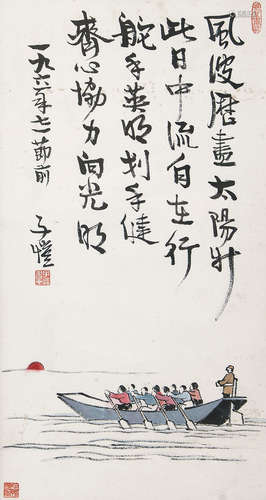 風波歷盡太陽升
此日中流自在行
舵手英明划手健
齊心協力向光明
一九六年七一節前
子愷